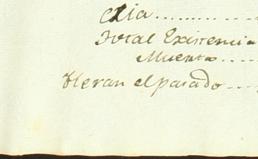 exia..........
Total Existencia
Muertos....
Heran el pasado...